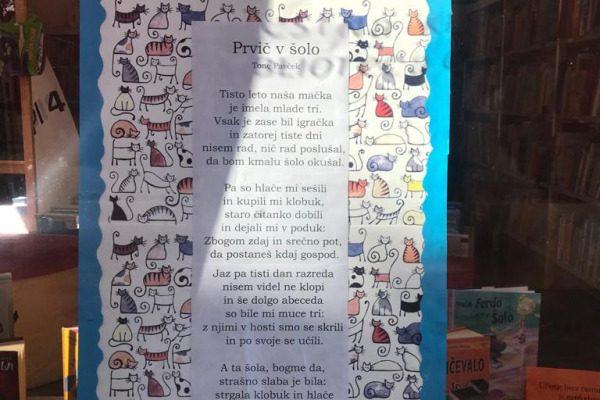 Prvič v šolo
Tone Pavček
Tisto leto naša mačka
je imela mlade tri.
Vsak je zase bil igračka
in zatorej tiste dni
nisem rad, nič rad poslušal,
da bom kmalu šolo okušal.
Pa so hlače mi sešili
in kupili mi klobuk,
staro čitanko dobili
in dejali mi v poduk:
Zbogom zdaj in srečno pot,
da postaneš kdaj gospod.
Jaz pa tisti dan razreda
nisem videl ne klopi
in še dolgo abeceda
so bile mi muce tri:
z njimi v hosti smo se skrili
in po svoje se učili.
A ta šola, bogme da,
strašno slaba je bila:
strgala klobuk in hlače
Ferdo
v
Šolo